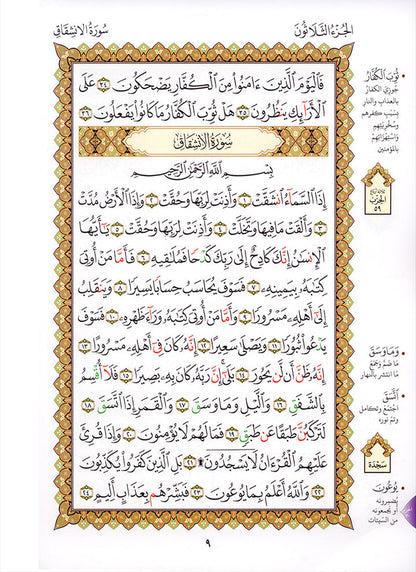 الجزء الثلاثون
سورة الانشقاق
فَالْيَوْمَ الَّذِينَ ءَامَنُوا مِنَ الْكُفَّارِ يَضْحَكُونَ ٣٤ عَلَى
الْأَرَائِكِ يَنظُرُونَ ٣٥ هَلْ ثُوِّبَ الْكُفَّارُ مَا كَانُوا يَفْعَلُونَ ٣٦
سورة الانشقاق
بِسْمِ اللَّهِ الرَّحْمَٰنِ الرَّحِيمِ
إِذَا السَّمَاءُ انشَقَّتْ ١ وَأَذِنَتْ لِرَبِّهَا وَحُقَّتْ ٢ وَإِذَا الْأَرْضُ مُدَّتْ
٣ وَأَلْقَتْ مَا فِيهَا وَتَخَلَّتْ ٤ وَأَذِنَتْ لِرَبِّهَا وَحُقَّتْ ٥ يَٰأَيُّهَا
الْإِنسَٰنُ إِنَّكَ كَادِحٌ إِلَىٰ رَبِّكَ كَدْحًا فَمُلَٰقِيهِ ٦ فَأَمَّا مَنْ أُوتِيَ
كِتَٰبَهُ بِيَمِينِهِ ٧ فَسَوْفَ يُحَاسَبُ حِسَابًا يَسِيرًا ٨ وَيَنقَلِبُ
إِلَىٰ أَهْلِهِ مَسْرُورًا ٩ وَأَمَّا مَنْ أُوتِيَ كِتَٰبَهُ وَرَاءَ ظَهْرِهِ ١٠ فَسَوْفَ
يَدْعُوا ثُبُورًا ١١ وَيَصْلَىٰ سَعِيرًا ١٢ إِنَّهُ كَانَ فِي أَهْلِهِ مَسْرُورًا ١٣
إِنَّهُ ظَنَّ أَن لَّن يَحُورَ ١٤ بَلَىٰ إِنَّ رَبَّهُ كَانَ بِهِ بَصِيرًا ١٥ فَلَا أُقْسِمُ
بِالشَّفَقِ ١٦ وَالَّيْلِ وَمَا وَسَقَ ١٧ وَالْقَمَرِ إِذَا اتَّسَقَ ١٨
لَتَرْكَبُنَّ طَبَقًا عَن طَبَقٍ ١٩ فَمَا لَهُمْ لَا يُؤْمِنُونَ ٢٠ وَإِذَا قُرِئَ
عَلَيْهِمُ الْقُرْءَانُ لَا يَسْجُدُونَ ۩ ٢١ بَلِ الَّذِينَ كَفَرُوا يُكَذِّبُونَ
٢٢ وَاللَّهُ أَعْلَمُ بِمَا يُوعُونَ ٢٣ فَبَشِّرْهُم بِعَذَابٍ أَلِيمٍ ٢٤
ثُوِّبَ الْكُفَّارُ
جوزي الكفار
بالعذاب والنار
بسبب كفرهم
وسخريتهم
واستهزائهم
بالمؤمنين
الحزب
٥٩
وَمَا وَسَقَ
ما ضم وجمع
ما انتشر بالنهار
اتَّسَقَ
اجتمع وتكامل
وتم نوره
سجدة
يُوعُونَ
يضمرونه
أو يجمعونه
من السيئات
٩